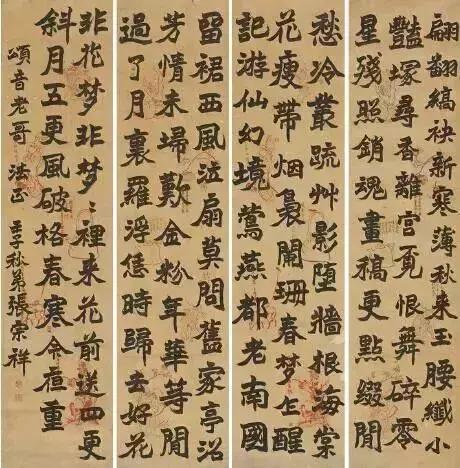 翩翻縞袂新寒薄秋来玉腰纖小
豔塚尋香離宫覓恨舞碎零
星殘照銷魂畫稿更點綴閒
愁冷叢疏艸影墮牆根海棠
花瘦帶烟裊闌珊春夢乍醒
記游仙幻境鶯燕都老南國
留裙西風泣扇莫問舊家亭沼
芳情未埽歎金粉年華等閒
過了月裏羅浮恁時歸去好花
非花夢非夢〻裡来花前送四更
斜月五更風破格春寒今亱重
頌音老哥 法正 壬子秋弟張宗祥